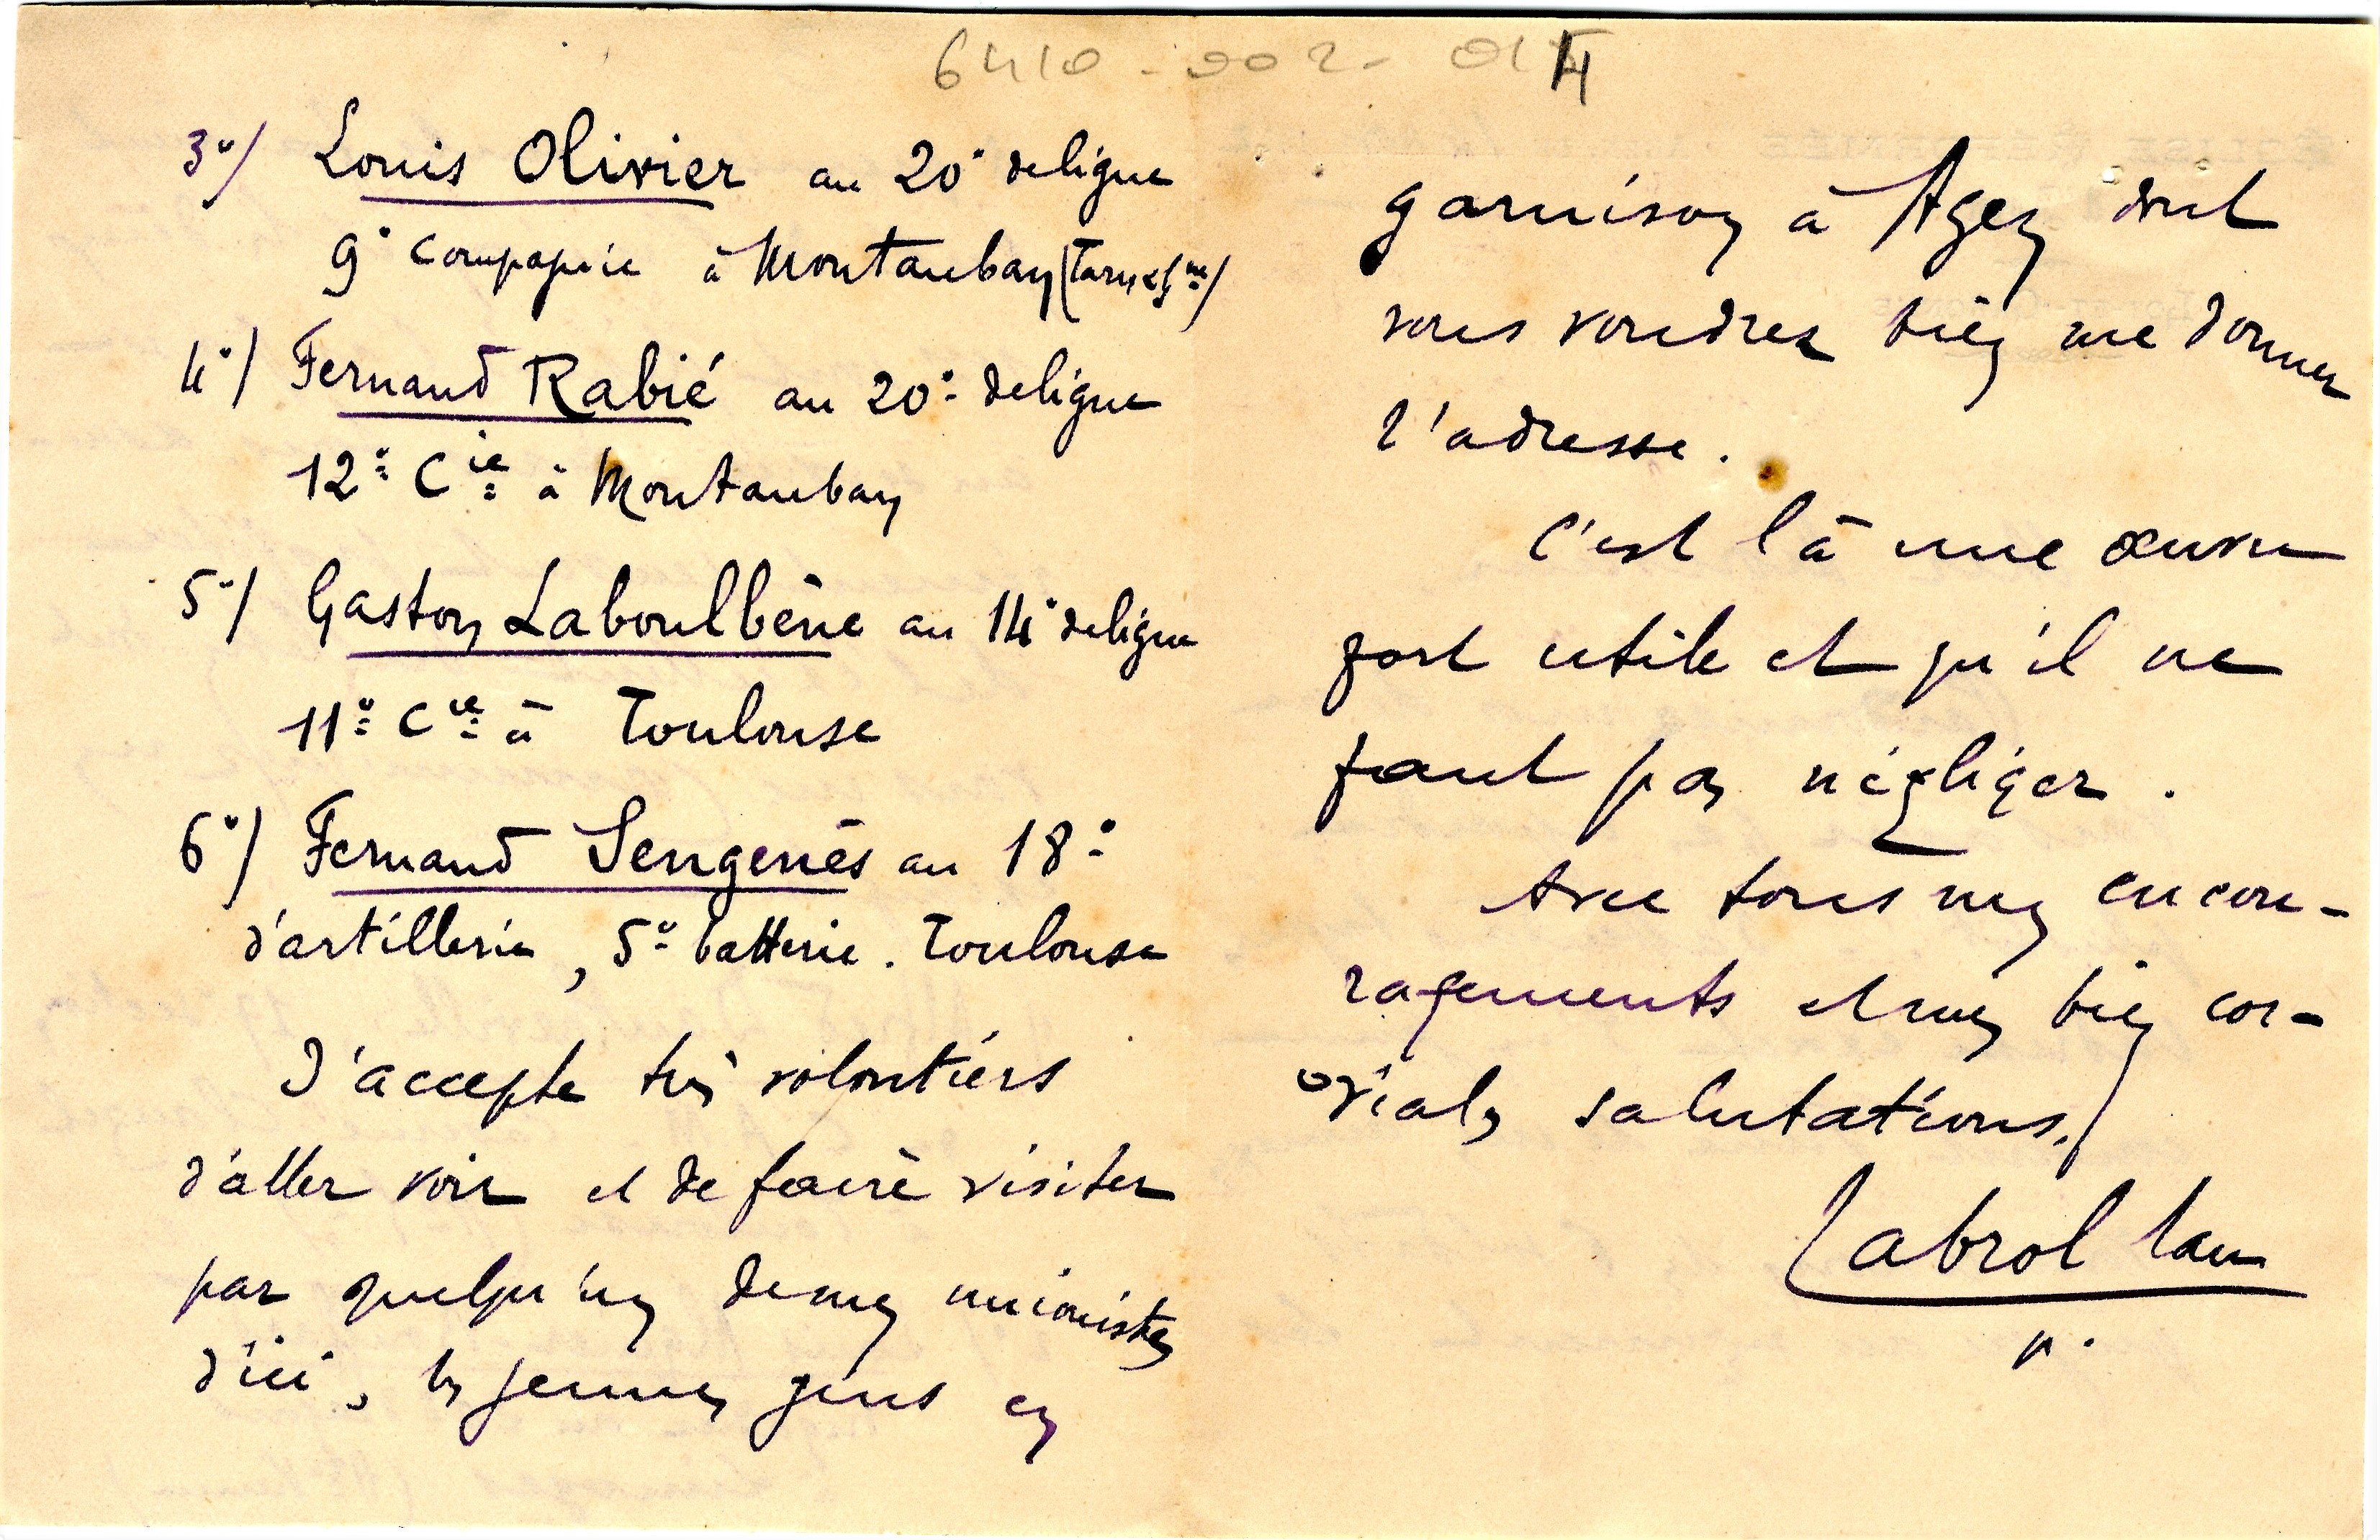 6410-002-014
3°/ Louis Olivier au 20e de ligne
9e Compagnie à Montauban (Tarn et Gne)
4°/ Fernand Rabié au 20e de ligne
12e Cie à Montauban
5°/ Gaston Laboulbène au 14e de ligne
11e Cie à Toulouse
6°/ Fernand Sengenès au 18e
d'artillerie, 5e batterie. Toulouse
J'accepte très volontiers
d'aller voir et de faire visiter
par quelqu'un de mes unionistes
d'ici, les jeunes gens en
garnison à Agen dont
vous voudrez bien me donner
l'adresse.
C'est là une œuvre
fort utile et qu'il ne
faut pas négliger.
Avec tous mes encou-
ragements et mes bien cor-
diales salutations./
Cabrol
p.